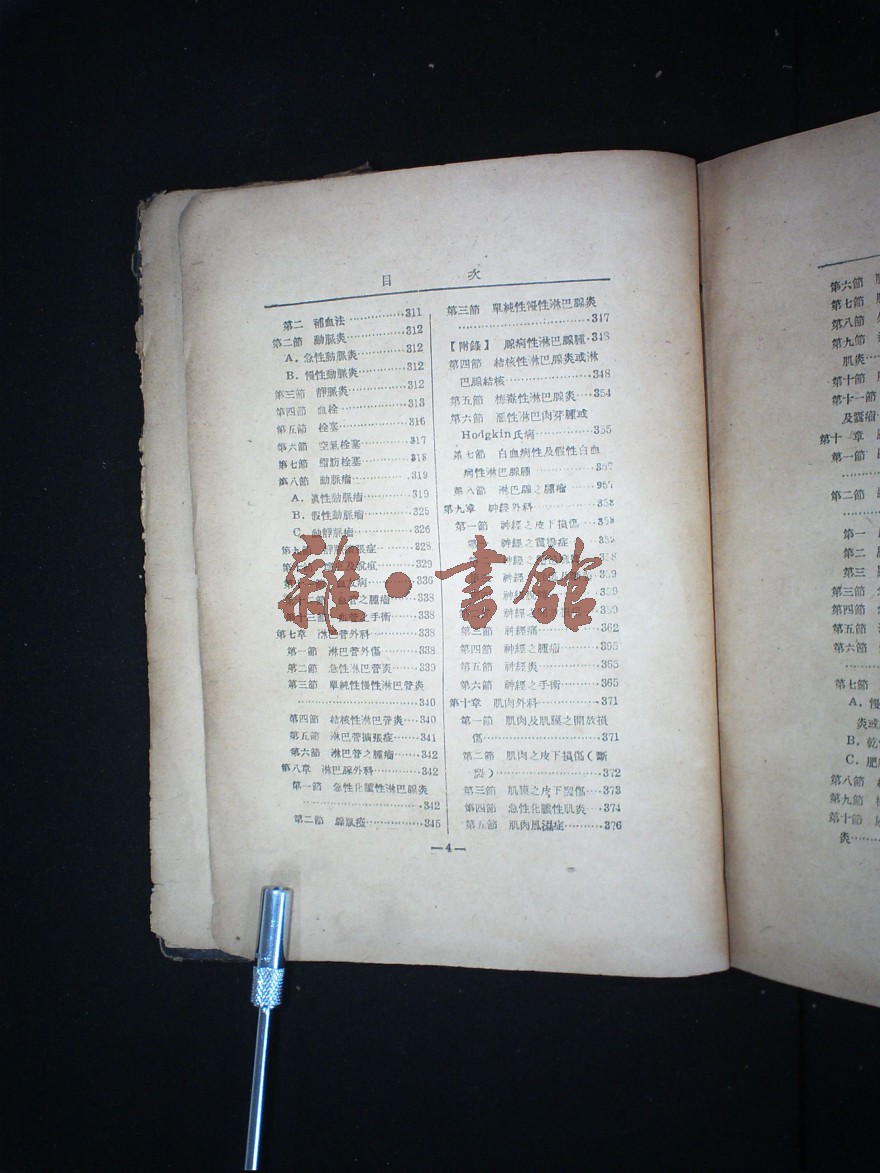 目 次
第二 補血法 311
第二節 動脈炎 312
A. 急性動脈炎 312
B. 慢性動脈炎 312
第三節 靜脈炎 312
第四節 血栓 313
第五節 栓塞 316
第六節 空氣栓塞 317
第七節 脂肪栓塞 318
第八節 動脈瘤 319
A. 眞性動脈瘤 319
B. 假性動脈瘤 325
C. 動靜脈瘤 326
張症 328
329
336
血管之腫瘤 338
第十三節 血管之手術 338
第七章 淋巴管外科 338
第一節 淋巴管外傷 338
第二節 急性淋巴管炎 339
第三節 單純性慢性淋巴管炎
340
第四節 結核性淋巴管炎 340
第五節 淋巴管擴張症 341
第六節 淋巴管之腫瘤 342
第八章 淋巴腺外科 342
第一節 急性化膿性淋巴腺炎
342
第二節 345
第三節 單純性慢性淋巴腺炎
347
【附錄】 腺病性淋巴腺腫 348
第四節 結核性淋巴腺炎或淋
巴腺結核 348
第五節 梅毒性淋巴腺炎 354
第六節 惡性淋巴肉牙腫或
Hodgkin氏病 355
第七節 白血病性及假性白血
病性淋巴腺腫 357
第八節 淋巴腺之腫瘤 957
第九章 神經外科 358
第一節 神經之皮下損傷 358
神經之震盪症
神經
359
359
第三節 神經痛 362
第四節 神經之腫瘤 365
第五節 神經炎 365
第六節 神經之手術 365
第十章 肌肉外科 371
第一節 肌肉及肌膜之開放損
傷 371
第二節 肌肉之皮下損傷(斷
裂) 372
第三節 肌膜之皮下裂傷 373
第四節 急性化膿性肌炎 374
第五節 肌肉風濕症 376
—4—
雜·書館
第六節
第七節
第八節
第九節
肌炎
第十節
第十一節
及囊瘤
第十一章
第一節
第二節
第一
第二
第三
第三節
第四節
第五節
第六節
第七節
A. 慢
炎或
B. 乾
C. 肥
第八節
第九節
第十節
炎